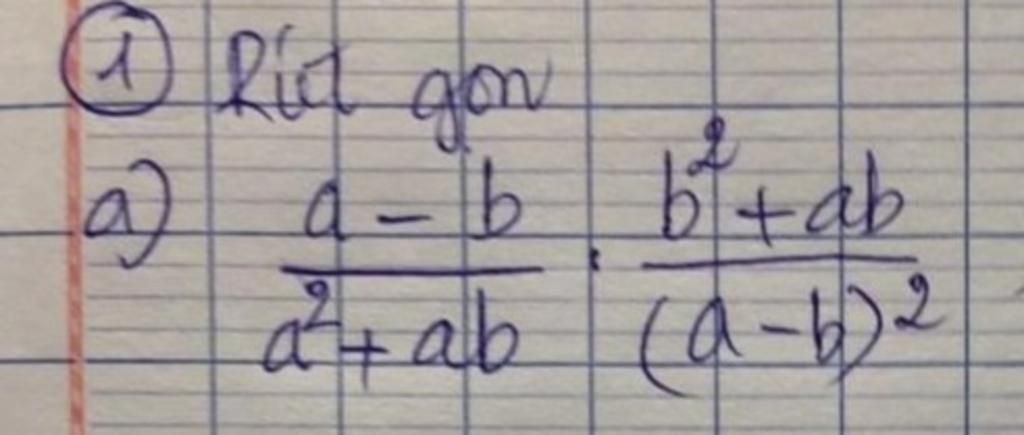 ① Rút gọn
a) \frac{a - b}{a^2 + ab} \cdot \frac{b^2 + ab}{(a - b)^2}